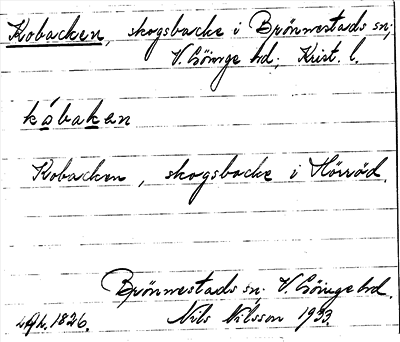 Kobacken, skogsbacke i Brönnestads sn;
V. Göinge hd; Krist. l.
kòbakən
Kobacken, skogsbacke i Hörröd.
Brönnestads sn. V. Göinge hd.
LAL. 1826. Nils Nilsson 1933.